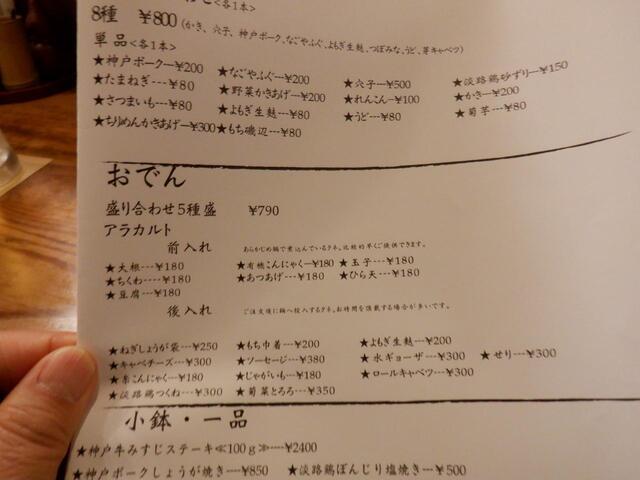 8種 ¥800（かき、穴子、神戸ポーク、なごやふぐ、よもぎ生麩、つぼみな、うど、芽キャベツ）
単品<各1本>
★神戸ポーク---¥200 ★なごやふぐ---¥200 ★穴子---¥500 ★淡路鶏砂ずり---¥150
★たまねぎ---¥80 ★野菜かきあげ---¥200 ★れんこん---¥100 ★かき---¥200
★さつまいも---¥80 ★よもぎ生麩---¥80 ★うど---¥80 ★菊芋---¥80
★ちりめんかきあげ---¥300 ★もち磯辺---¥80
おでん
盛り合わせ5種盛 ¥790
アラカルト
前入れ あらかじめ鍋で煮込んでいるタネ。比較的早くご提供できます。
★大根---¥180 ★有機こんにゃく---¥180 ★玉子---¥180
★ちくわ----¥180 ★あつあげ---¥180 ★ひら天---¥180
★豆腐---¥180
後入れ ご注文後に鍋へ投入するタネ。お時間を頂戴する場合が多いです。
★ねぎしょうが袋---¥250 ★もち巾着---¥200 ★よもぎ生麩---¥200
★キャベチーズ---¥300 ★ソーセージ---¥380 ★水ギョーザ---¥300 ★せり---¥300
★糸こんにゃく---¥180 ★じゃがいも---¥180 ★ロールキャベツ---¥300
★淡路鶏つくね---¥300 ★菊菜とろろ---¥350
小鉢・一品
★神戸牛みすじステーキ≪100g≫----¥2400
★神戸ポークしょうが焼き---¥850 ★淡路鶏ぼんじり塩焼き---¥500